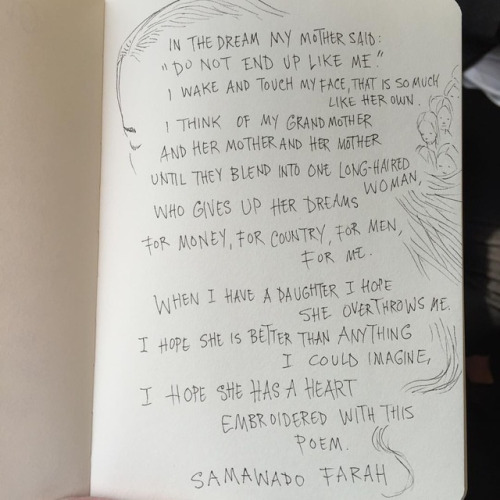 IN THE DREAM MY MOTHER SAID:
"DO NOT END UP LIKE ME."
I WAKE AND TOUCH MY FACE, THAT IS SO MUCH
LIKE HER OWN.
I THINK OF MY GRANDMOTHER
AND HER MOTHER AND HER MOTHER
UNTIL THEY BLEND INTO ONE LONG-HAIRED
WOMAN,
WHO GIVES UP HER DREAMS
FOR MONEY, FOR COUNTRY, FOR MEN,
FOR ME.
WHEN I HAVE A DAUGHTER I HOPE
SHE OVERTHROWS ME.
I HOPE SHE IS BETTER THAN ANYTHING
I COULD IMAGINE,
I HOPE SHE HAS A HEART
EMBROIDERED WITH THIS
POEM.
SAMAWADO FARAH